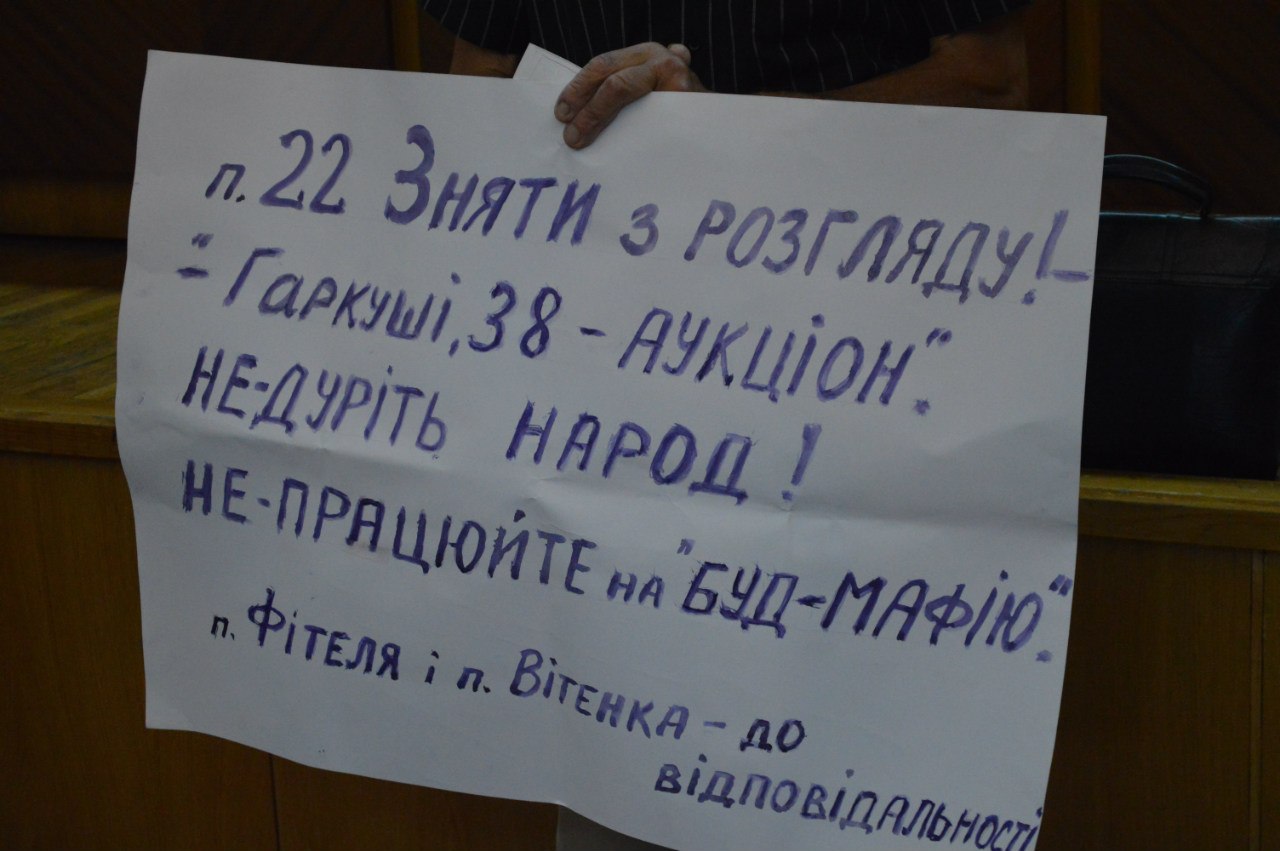 п. 22 Зняти з розгляду! -
"- Гаркуші, 38 - аукціон".
НЕ-ДУРІТЬ НАРОД!
НЕ-ПРАЦЮЙТЕ на "БУД-МАФІЮ".
п. Фітеля і п. Вітенка - до
відповідальності